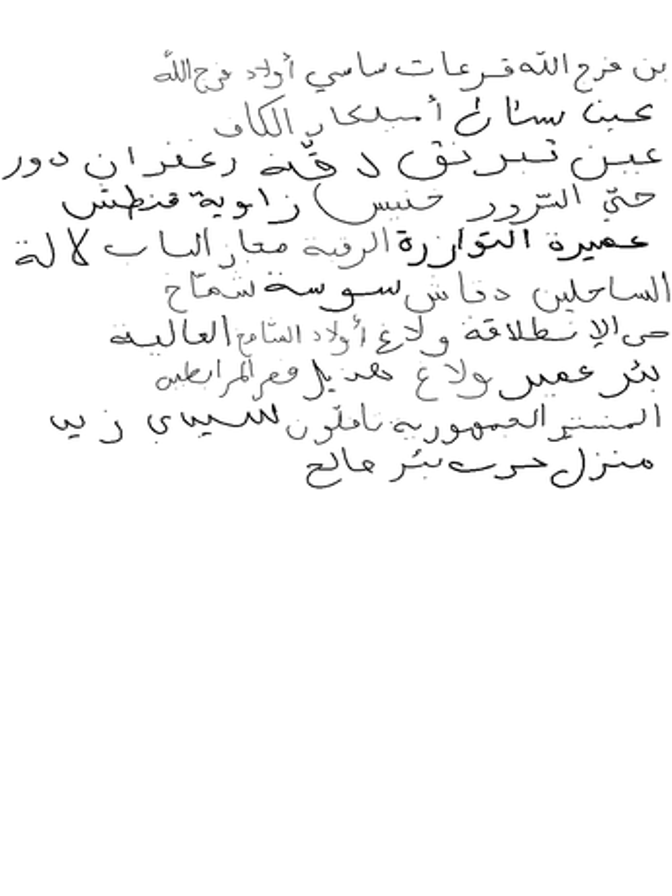 بن فرج الله قرعات ساسي أولاد فرج الله
عين سنان أميلكار الكاف
عين تبرنق دقّة زعفران دور
حيّ السّرور خنيس زاوية قنطش
عميرة التوازرة الرقبة مجاز الباب لالة
الساحلين دقاش سوسة شمّاخ
حي الإنطلاقة ولاغ أولاد الشّامخ العالية
بئر عمير ولاغ هذيل قصر المرابطين
المنستير الجمهورية تافلّون سيدي زيد
منزل حرب بئر صالح